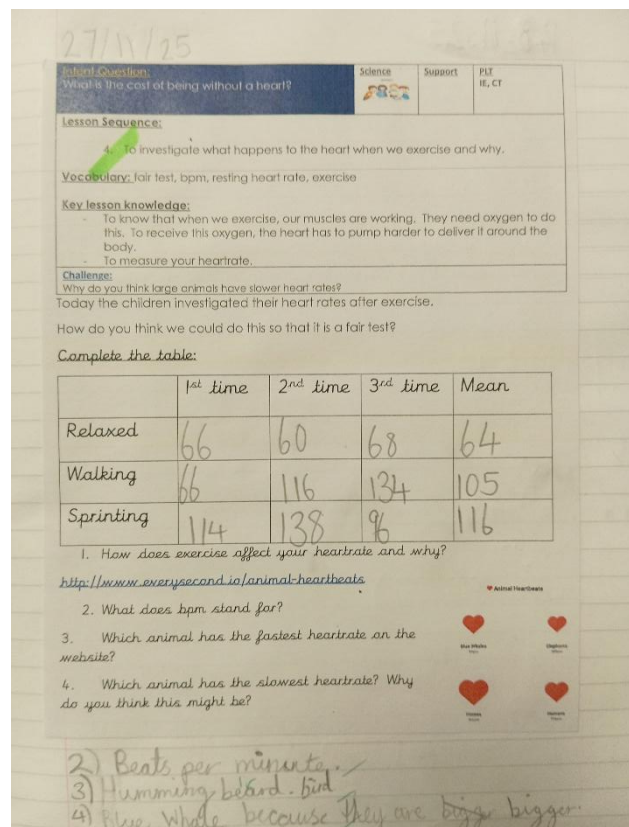 27/11/25
Intent Question:
What is the cost of being without a heart?
Science
Support
PLT
IE, CT
Lesson Sequence:
4. To investigate what happens to the heart when we exercise and why.
Vocabulary: fair test, bpm, resting heart rate, exercise
Key lesson knowledge:
- To know that when we exercise, our muscles are working. They need oxygen to do
this. To receive this oxygen, the heart has to pump harder to deliver it around the
body.
- To measure your heartrate.
Challenge:
Why do you think large animals have slower heart rates?
Today the children investigated their heart rates after exercise.
How do you think we could do this so that it is a fair test?
Complete the table:
1st time 2nd time 3rd time Mean
Relaxed 66 60 68 64
Walking 66 116 134 105
Sprinting 114 138 96 116
1. How does exercise affect your heartrate and why?
http://www.everysecond.io/animal-heartbeats
2. What does bpm stand for?
3. Which animal has the fastest heartrate on the
website?
4. Which animal has the slowest heartrate? Why
do you think this might be?
Animal Heartbeats
2) Beats per minute.
3) Humming bird.
4) Blue Whale because they are bigger.